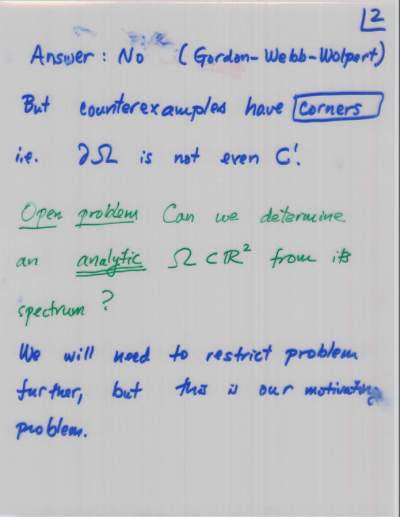 2
Answer: No (Gordon-Webb-Wolpert)
But counterexamples have corners
i.e. ∂Ω is not even C¹.
Open problem Can we determine
an analytic Ω ⊂ ℝ² from its
spectrum?
We will need to restrict problem
further, but this is our motivating
problem.